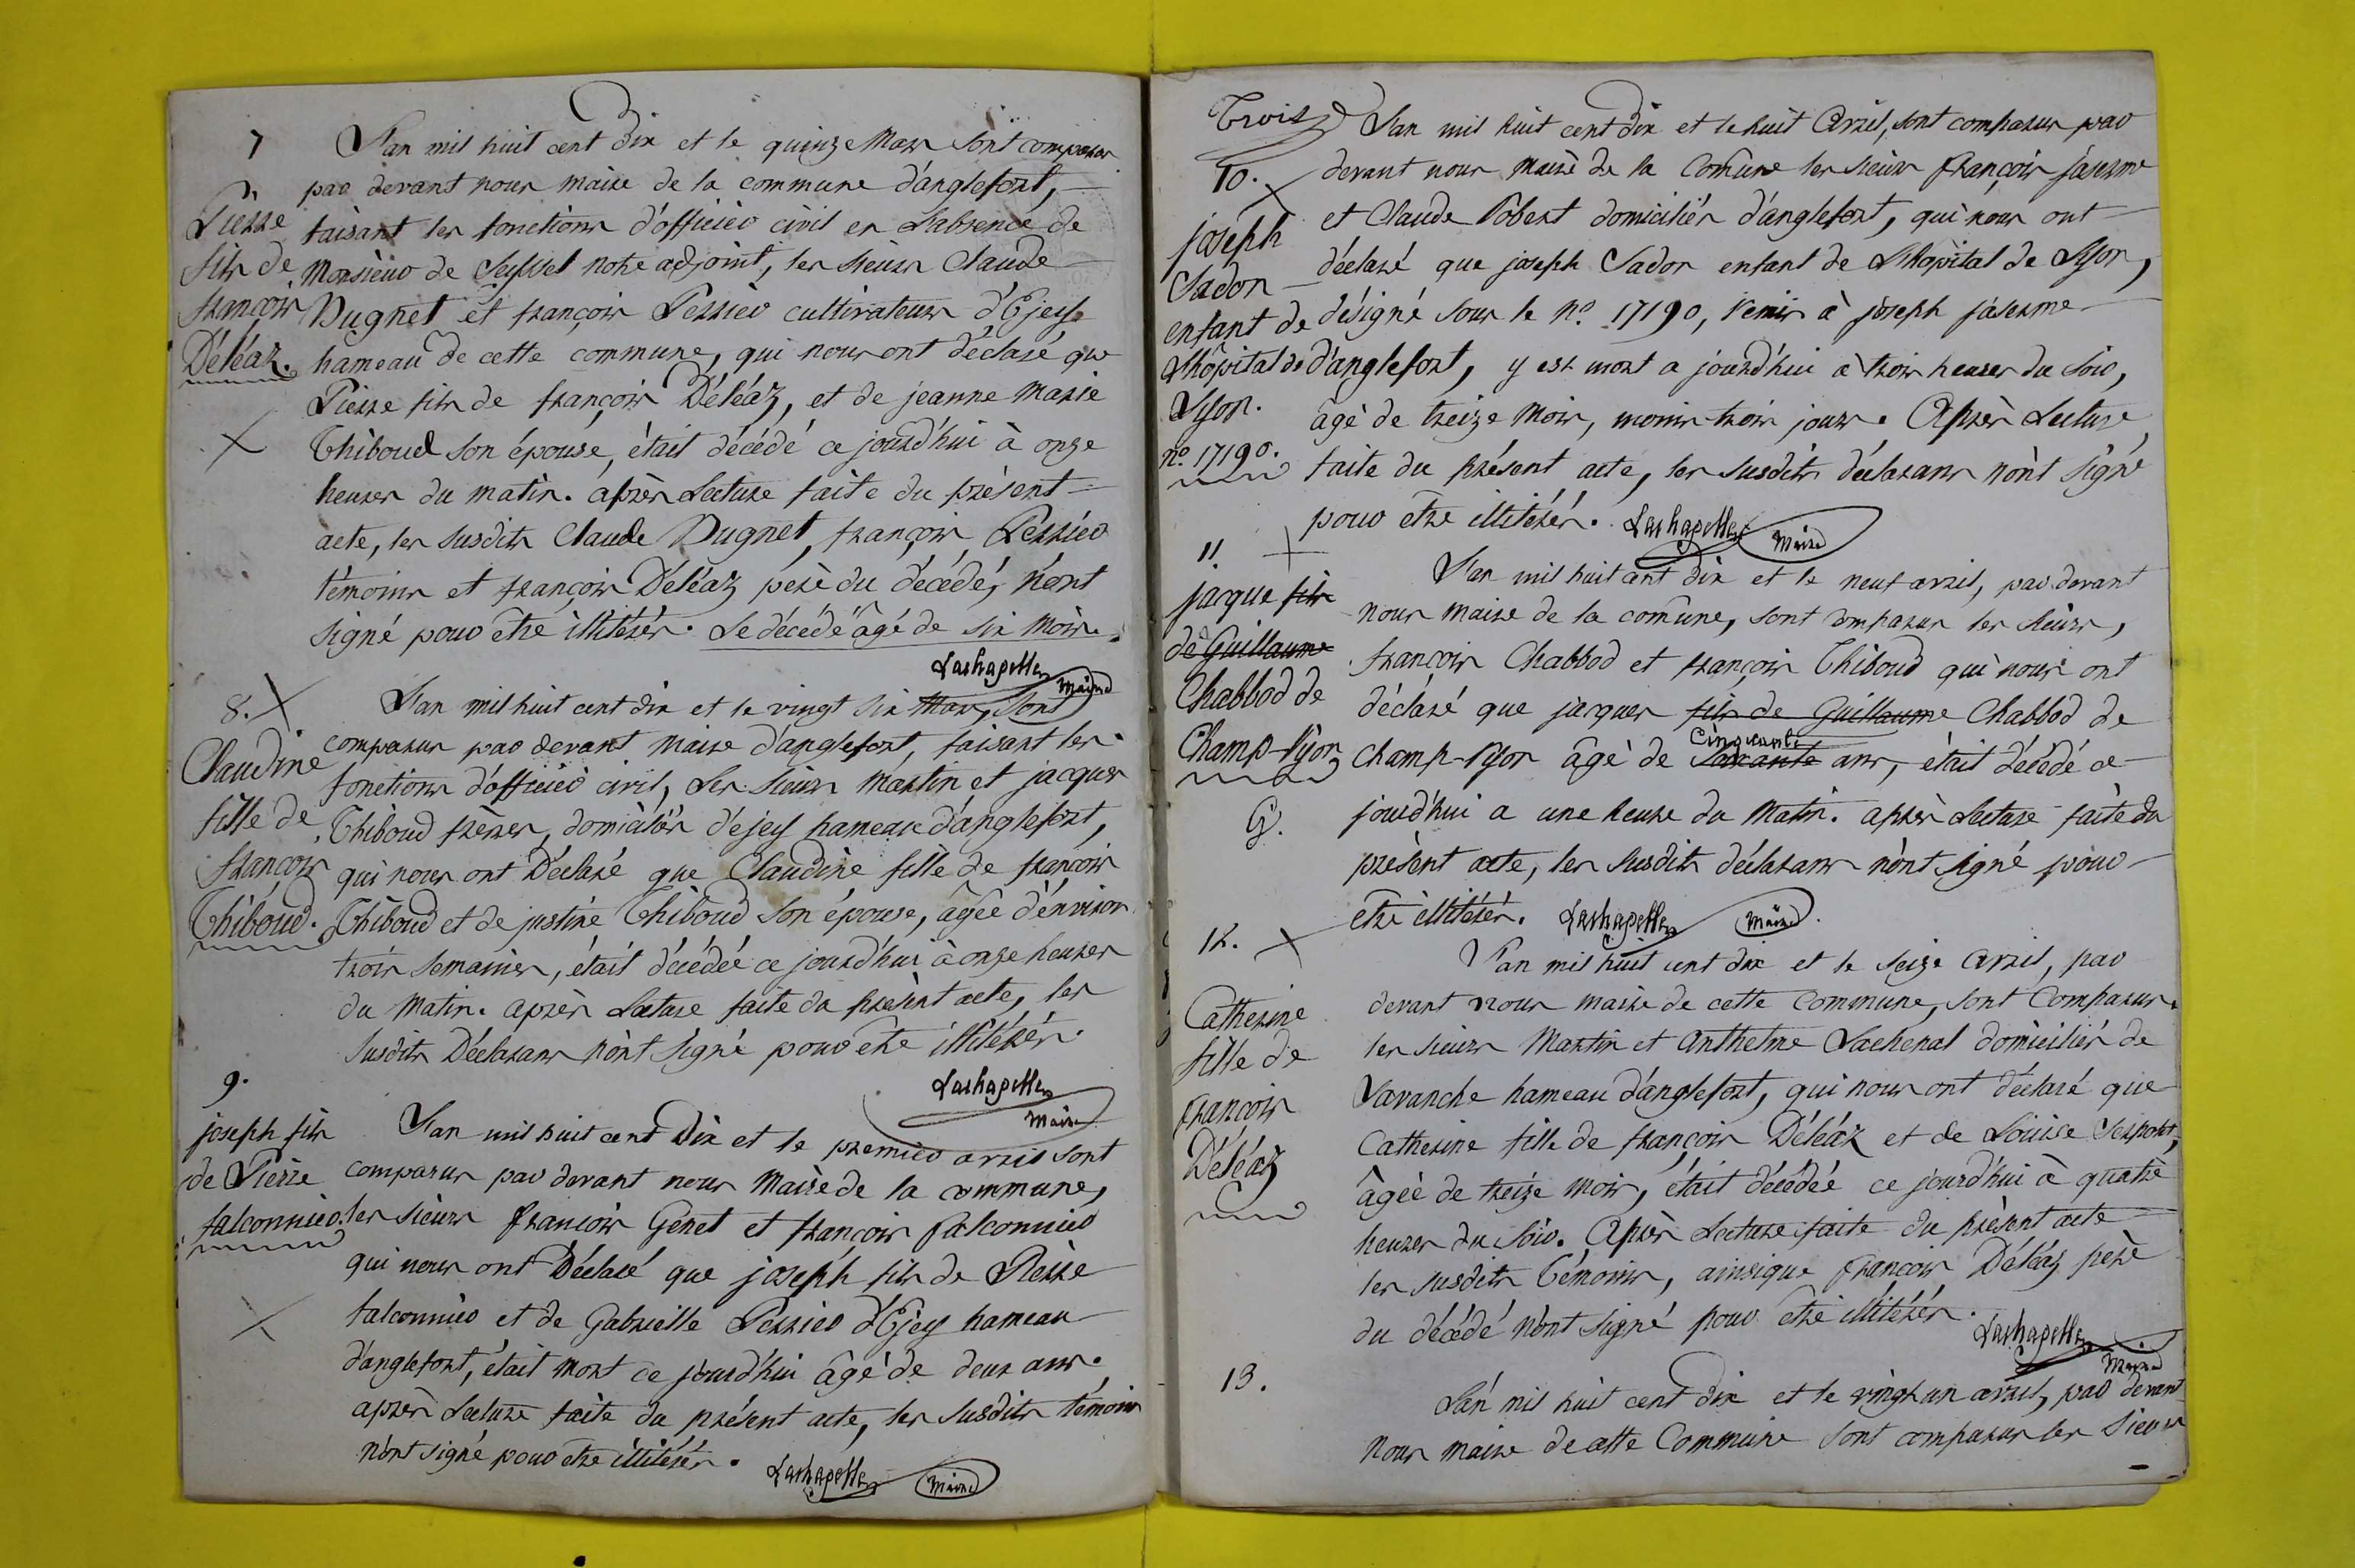 7
L'an mil huit cent dix et le quinze Mars sont comparus
par devant nous maire de la commune d'anglefort,
faisant les fonctions d'officier civil en L'absence de
Monsieur de Seyssel notre adjoint, les sieurs Claude
Dugnet et françois Perrier cultivateurs d'Ejey
hameau de cette commune, qui nous ont déclaré que
Pierre fils de françois Déléaz, et de jeanne Marie
Thiboud son épouse, était décédé ce jourd'hui à onze
heures du matin. après Lecture faite du présent
acte, les susdits Claude Dugnet, françois Perrier
témoins et françois Déléaz père du décédé, n'ont
signé pour être illitérés. Le décédé âgé de six mois.
Lachapelle Maire
Pierre
fils de
françois
Déléaz.
8.
L'an mil huit cent dix et le vingt six Mars, sont
comparus par devant maire d'anglefort, faisant les
fonctions d'officier civil, Les sieurs Martin et jacques
Thiboud frères, domiciliés d'ejey hameau d'anglefort,
qui nous ont Déclaré que Claudine fille de françois
Thiboud et de justine Thiboud son épouse, âgée d'environ
trois semaines, était décédée ce jourd'hui à onze heures
du Matin. après Lecture faite du présent acte, les
susdits Déclarans n'ont signé pour être illitérés.
Lachapelle
Maire
Claudine
fille de
françois
Thiboud.
9.
L'an mil huit cent Dix et le premier avril sont
comparus par devant nous Maire de la commune,
les sieurs françois Genet et françois falconnier
qui nous ont Déclaré que joseph fils de Pierre
falconnier et de Gabrielle Perrier d'Ejey hameau
d'anglefort, était mort ce jourd'hui âgé de deux ans.
après Lecture faite du présent acte, les susdits témoins
n'ont signé pour être illitérés. Lachapelle Maire
joseph fils
de Pierre
falconnier.
Trois
10.
L'an mil huit cent Dix et le huit Avril, sont comparus par
devant nous maire de la Comune les sieurs françois jaserme
et Claude Robert domiciliés d'anglefort, qui nous ont
déclaré que joseph Sador enfant de L'hôpital de Lyon,
désigné sous le N.º 17190, remis à joseph jaserme
d'anglefort, y est mort a jourd'hui à trois heures du soir,
âgé de treize mois, moins trois jours. Après Lecture
faite du présent acte, les susdits déclarans n'ont signé
pour être illitérés. Lachapelle Maire
joseph
Sador
enfant de
L'hôpital de
Lyon.
n.º 17190.
11.
L'an mil huit cent dix et le neuf avril, par devant
nous maire de la comune, sont comparus les sieurs,
françois Chabbod et françois Thiboud qui nous ont
déclaré que jacques fils de Guillaume Chabbod de
Cinquante
Champ-Lyon âgé de Soixante ans, était décédé ce
jourd'hui a une heure du Matin. après Lecture faite du
présent acte, les susdits déclarans n'ont signé pour
être illitérés. Lachapelle Maire.
jacque fils
de Guillaume
Chabbod de
Champ-Lyon
G.
12.
L'an mil huit cent dix et le seize Avril, par
devant nous maire de cette Commune, sont Comparus
les sieurs Martin et Anthelme Lachenal domiciliés de
Lavanche hameau d'anglefort, qui nous ont déclaré que
Catherine fille de françois Déléaz et de Louise
âgée de treize mois, était décédée ce jourd'hui à quatre
heures du soir. Après Lecture faite du présent acte
les susdits témoins, ainsique françois Déléaz père
du décédé n'ont signé pour être illitérés.
Lachapelle
Maire
Catherine
fille de
françois
Déléaz
13.
L'an mil huit cent dix et le vingt un avril, par devant
Nous maire de cette Commune sont comparus les Sieurs